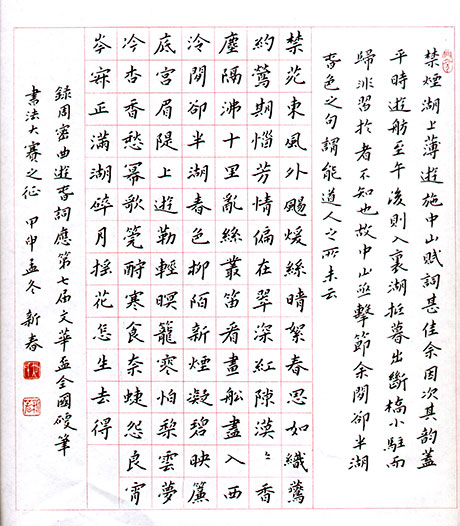 禁煙湖上薄遊施中山賦詞甚佳余因次其韵蓋
平時遊舫至午後則入裏湖抵暮出斷橋小駐而
歸非習於者不知也故中山亟擊節余閒卻半湖
春色之句謂能道人之所未云
禁苑東風外颺煖絲晴絮春思如織鷰
約鶯期惱芳情偏在翠深紅隙漠〻香
塵隔沸十里亂絲叢笛看畫船盡入西
泠閒卻半湖春色柳陌新煙凝碧映簾
底宮眉隄上遊勒輕暝籠寒怕梨雲夢
冷杏香愁冪歌筦酧寒食奈蜨怨良宵
岑寂正滿湖碎月揺花怎生去得
録周密曲遊春詞應第七届文華盃全國硬筆
書法大賽之征 甲申孟冬 新春